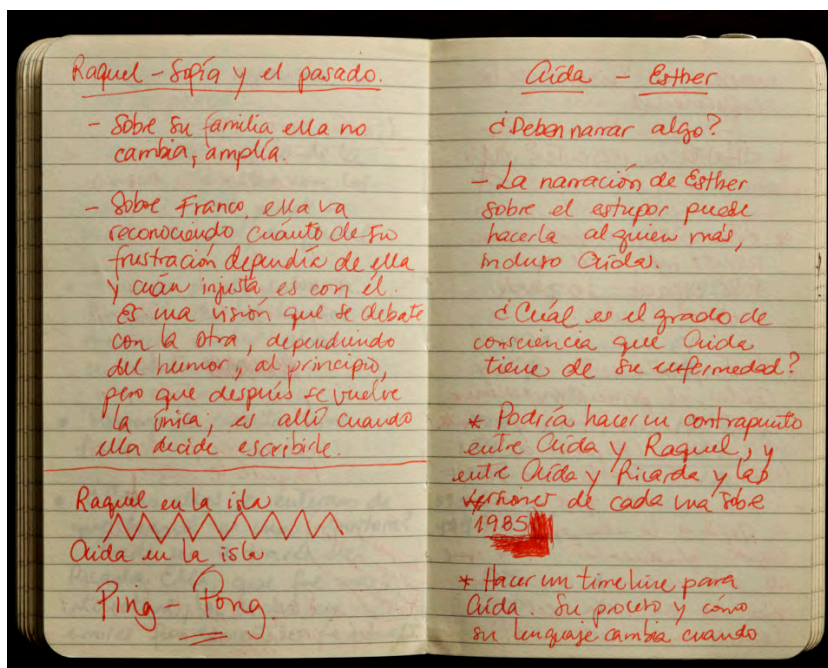 Raquel – Sofía y el pasado.
– Sobre su familia ella no
cambia, amplía.
– Sobre Franco, ella va
reconociendo cuánto de su
frustración dependía de ella
y cuán injusta es con él.
Es una visión que se debate
con la otra, dependiendo
del humor, al principio,
pero que después se vuelve
la única; es allí cuando
ella decide escribirle.
Raquel en la isla
Aída en la isla
Ping – Pong
Aída – Esther
¿Deben narrar algo?
– La narración de Esther
sobre el estupor puede
hacerla alguien más,
incluso Aída.
¿Cuál es el grado de
consciencia que Aída
tiene de su enfermedad?
* Podría hacer un contrapunto
entre Aída y Raquel, y
entre Aída y Ricarda y las
versiones de cada una sobre
1985
* Hacer un timeline para
Aída. Su proceso y cómo
su lenguaje cambia cuando